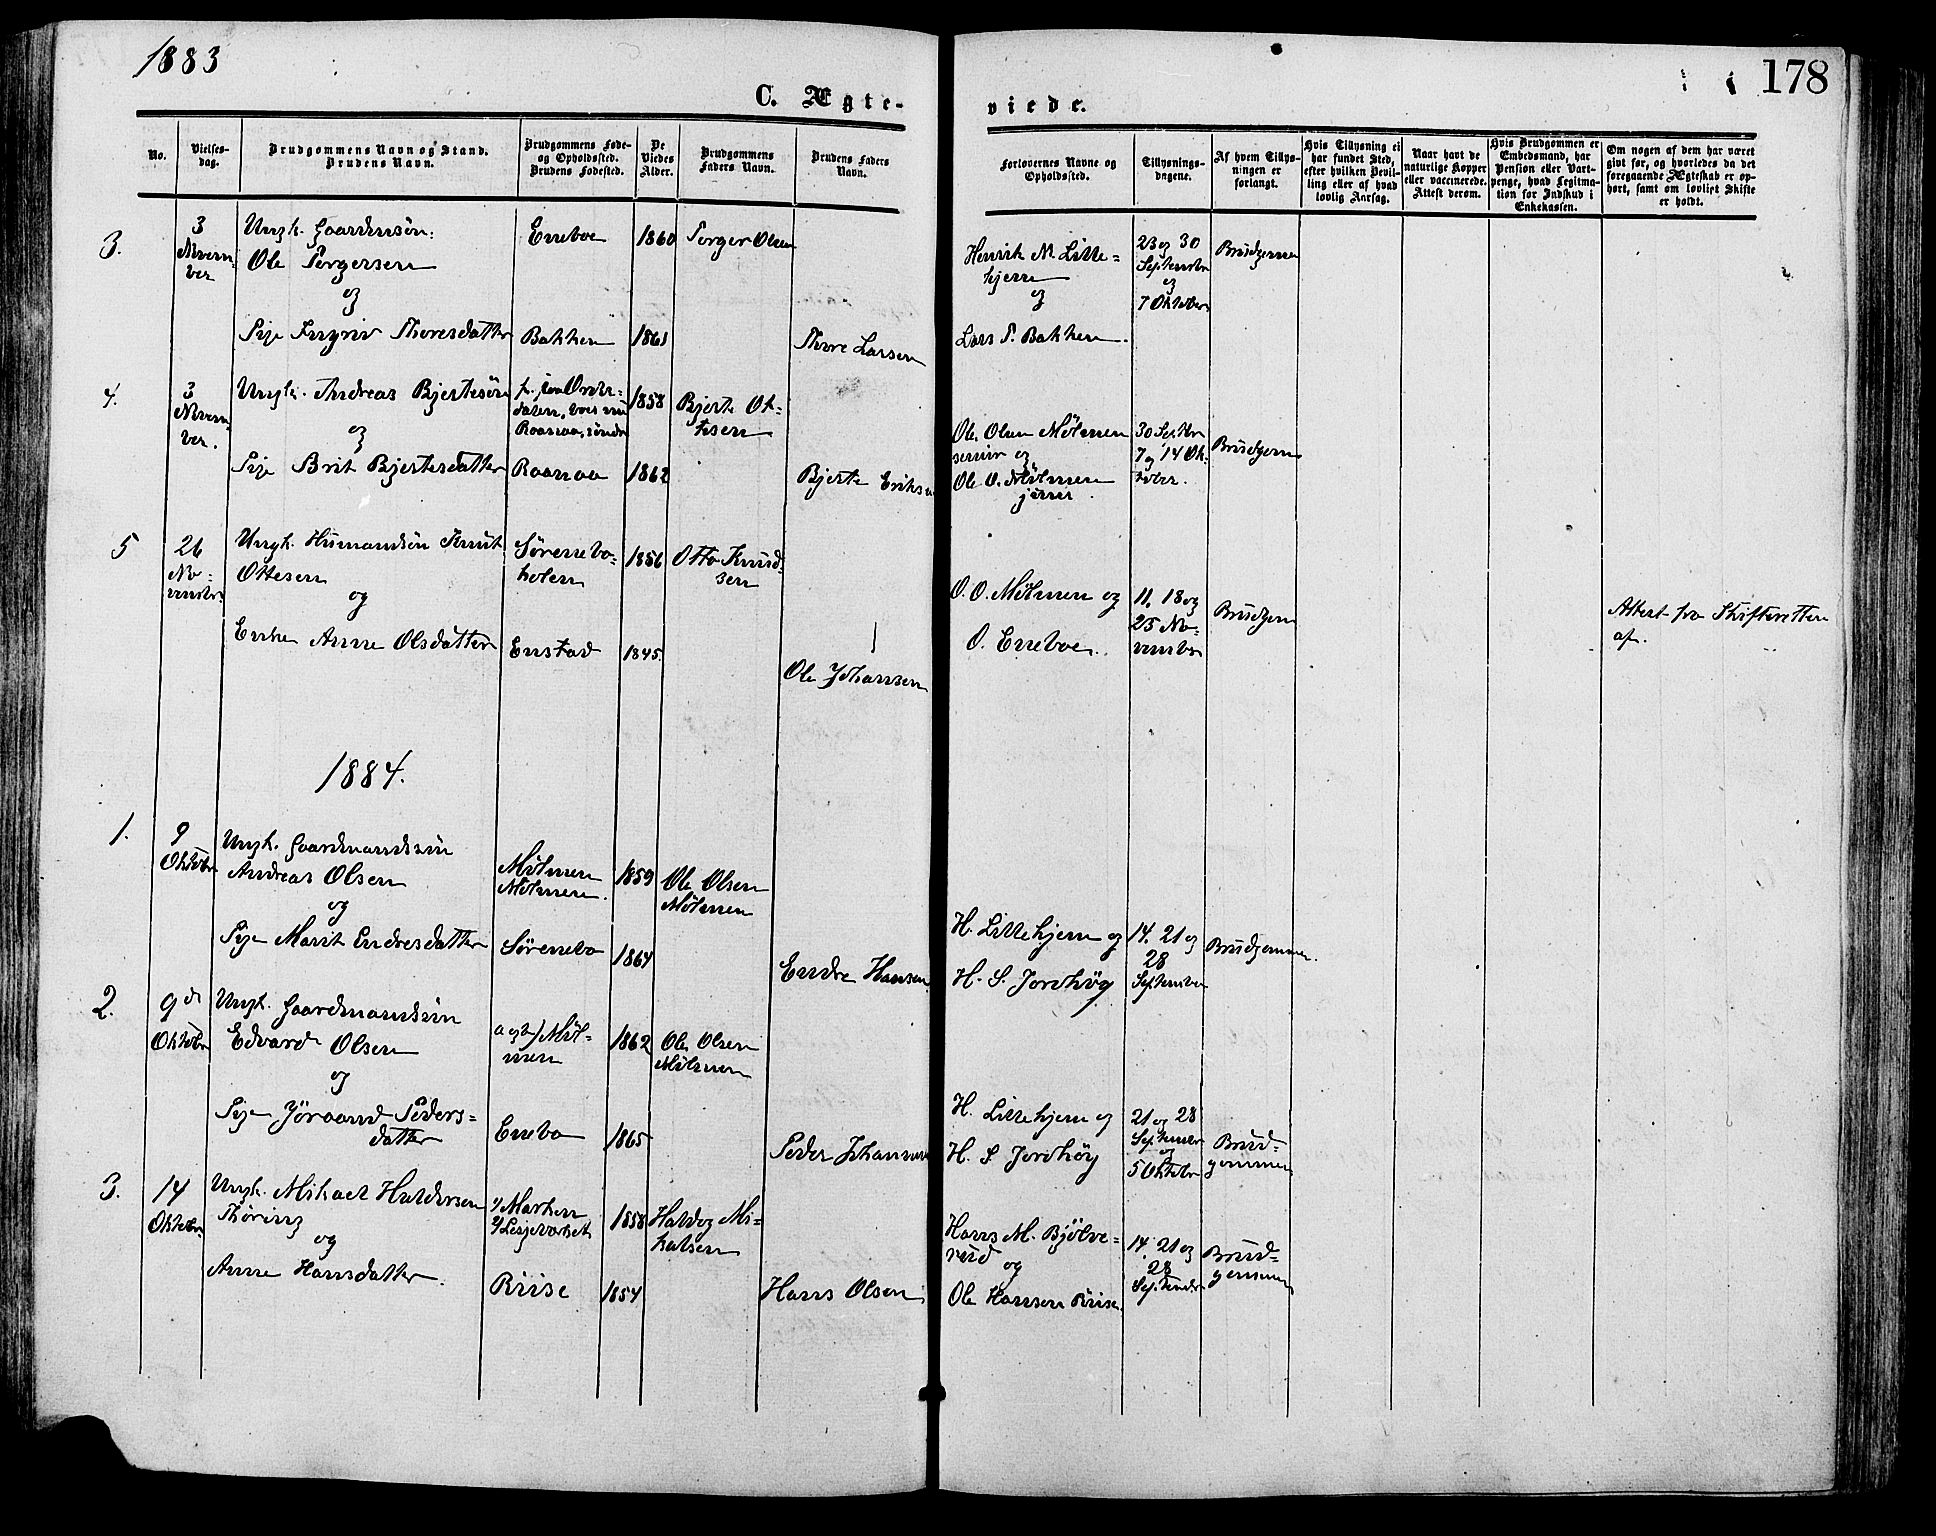 1883
178
C. Ægte-
viede.
No.
Vielses-
dag.
Brudgommens Navn og Stand.
Brudens Navn.
Brudgommens Føde-
og Opholdssted.
Brudens Fødested.
De
Viedes
Alder.
Brudgommens
Faders Navn.
Brudens Faders
Navn.
Forlovernes Navne og
Opholdssted.
Tillysnings-
dagene.
Af hvem Tillys-
ningen er
forlangt.
Hvis Tillysning ei
har fundet Sted,
efter hvilken Bevil-
ling eller af hvad
lovlig Aarsag.
Naar havt de
naturlige Kopper
eller vaccinerede.
Attest derom.
Hvis Brudgommen er
Embedsmand, har
Pension eller Vart-
penge, hvad Legitima-
tion for Indskud i
Enkekassen.
Om nogen af dem har været
givt før, og hvorledes da det
foregaaende Ægteskab er op-
hørt, samt om lovligt Skifte
er holdt.
3.
3
Novem-
ber
Ungk. Gaardmsøn:
Ole Torgersen
og
Pige Ingrid Thoresdatter
Enebo
Bakken
1860
1861
Torger Olsen
Thore Larsen
Henrik M. Lille-
kjern
og
Lars T. Bakken.
23 og 30
September
og
7 Oktober
Brudgommen
4.
3
Novem-
ber.
Ungk. Andreas Bjertesøn
og
Pige Brit Bjertesdatter
Raanaa, søndre
Raanaa
1858
1862
Bjerte Ot-
tesen
Bjerte Eriksen
Ole Olsen Mølmen
senior og
Ole O. Mølmen
junr.
30 Septbr
7 og 14 Ok-
tober.
Brudgom
5
26
No-
vember
Ungk. Husmandsøn Knut
Ottesen
og
Enke Anne Olsdatter
Sørenebo-
kolen
Enstad
1856
1845.
Otto Knud-
sen
Ole Johansen
O. O. Mølmen og
O. Enebo.
11, 18 og
25 No-
vember
Brudgom
Attest fra Skifteretten
af.
1884.
1.
9
Oktober
Ungk. Gaardmandsøn
Andreas Olsen
og
Pige Marit Endresdatter
Mølmen
Mølmen.
Sørenebo
1859
1864
Ole Olsen
Mølmen
Endre Hansen
H. Lillekjern og
H. S. Jordhøy
14. 21 og
28
September
Brudgommen.
2.
9de
Oktober
Ungk. Gaardmandsøn
Edvard Olsen
og
Pige Jøraand Peders-
datter
a og b) Møl-
men
Enebo
1862
1865
Ole Olsen
Mølmen
Peder Johannes
H. Lillekjern og
H. S Jordhøy
21 og 28
September
og
5 Oktober
Brud-
gommen
3.
14
Oktober
Ungk. Mikael Haldorsen
Thøring
og
Anne Hansdatter.
Lesjeverket
Riise
1858
1854
Haldog Mi-
kalsen
Hans Olsen
Hans M. Bjølve-
rud og
Ole Hansen Riise
14. 21 og
28
September
Brud-
gommen